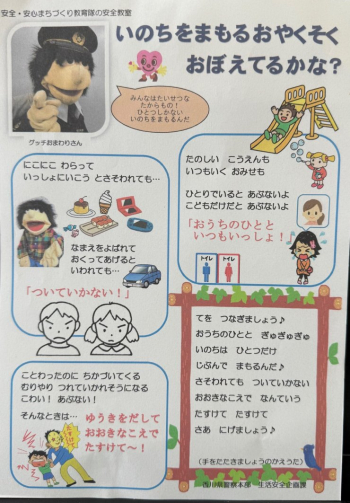 安全・安心まちづくり教育隊の安全教室
いのちをまもるおやくそく
おぼえてるかな?
グッチおまわりさん
みんなはたいせつな
たからもの!
ひとつしかない
いのちをまもるんだ
にこにこ わらって
いっしょにいこう とさそわれても…
なまえをよばれて
おくってあげると
いわれても…
「ついていかない!」
たのしい こうえんも
いつもいく おみせも
ひとりでいると あぶないよ
こどもだけだと あぶないよ
「おうちのひとと
いつもいっしょ!」
トイレ
トイレ
ことわったのに ちかづいてくる
むりやり つれていかれそうになる
こわい! あぶない!
そんなときは…
ゆうきをだして
おおきなこえで
たすけて~!
てを つなぎましょう♪
おうちのひとと ぎゅぎゅぎゅ
いのちは ひとつだけ
じぶんで まもるんだ♪
さそわれても ついていかない
おおきなこえで なんていう
たすけて たすけて
さあ にげましょう♪
(手をたたきましょうのかえうた)
香川県警察本部 生活安全企画課